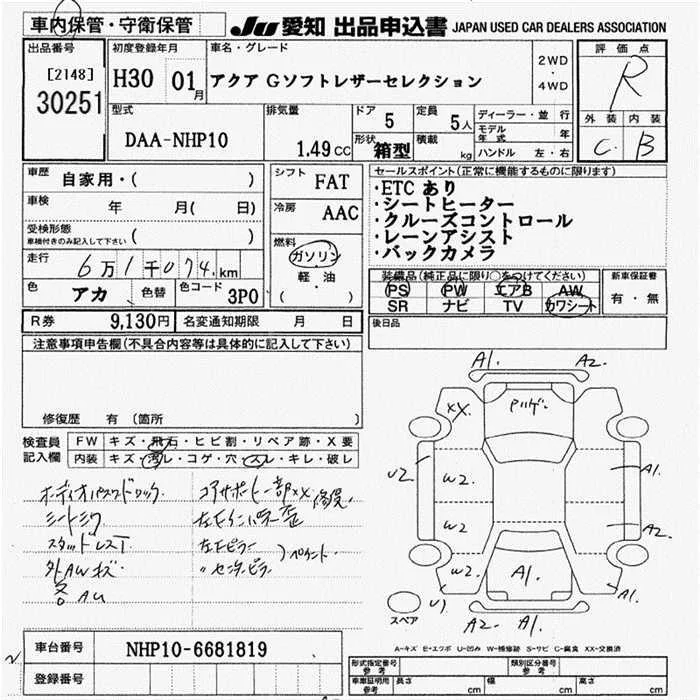 車内保管・守衛保管
JU 愛知 出品申込書 JAPAN USED CAR DEALERS ASSOCIATION
出品番号
[2148]
30251
初度登録年月
H30 01月
車名・グレード
アクア Gソフトレザーセレクション
2WD
・
4WD
評価点
R
外装 内装
C B
型式
DAA-NHP10
排気量
1.49cc
ドア
5
定員
5人
形状
箱型
積載
kg
ディーラー・並行
モデル年式 年
ハンドル 左・右
車歴 自家用・( )
車検 年 月( 日)
受検形態
車検付きのみ記入して下さい ( )
走行 6万1千074km
色 アカ 色替 色コード 3P0
シフト FAT
冷房 AAC
燃料
ガソリン
軽・油
( )
セールスポイント(正常に機能するものに限ります)
・ETC あり
・シートヒーター
・クルーズコントロール
・レーンアシスト
・バックカメラ
装備品(純正品に限り○をつけてください)
PS PW エアB AW
SR ナビ TV カワシート
新車保証書
有・無
R券 9,130円 名変通知期限 月 日
後日品
注意事項申告欄(不具合内容等は具体的に記入して下さい)
修復歴 有 (箇所 )
検査員記入欄
FW キズ・飛石・ヒビ割・リペア跡・X要
内装 キズ・汚レ・コゲ・穴・スレ・キレ・破レ
シートシワ
スタッドレス
外AWキズ
各AU
コアサポート一部XX修復
左右インパネ歪
左右ピラー
〃センタピラ
ペイント
A1. A2.
XX
U2 W2 A1.
W2 A2
W2 A1. A1.
U1
A2- A1.
スペア
A-キズ E-エクボ U-凹み W-補修跡 S-サビ C-腐食 XX-交換済
車台番号 NHP10-6681819
登録番号
形式指定番号 参考
類別区分番号 参考
車庫証明用 参考
長さ cm
幅 cm
高さ cm